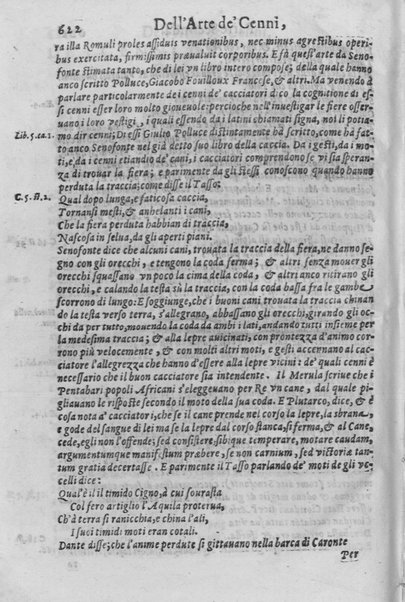 622
Dell'Arte de' Cenni,
ra illa Romuli proles assiduis venationibus, nec minus agrestibus operi-
bus exercitata, firmissimis præualuit corporibus. E fù quest'arte da Seno-
fonte stimata tanto, che di lei vn libro intero compose; della quale hanno
anco scritto Polluce, Giacobo Fouilloux Francese, & altri. Ma venendo à
parlare particolarmente dei cenni de' cacciatori dico la cognitione di es-
si cenni esser loro molto gioueuole: percioche nell'inuestigar le fiere osser-
uano i loro vestigi, i quali essendo da i latini chiamati signa, noi li potia-
Lib. 5. ca. 1. mo dir cenni; Di essi Giulio Polluce distintamente hà scritto, come hà fat-
to anco Senofonte nel già detto suo libro della caccia. Da i gesti, da i mo-
ti, e da i cenni etiandio de' cani, i cacciatori comprendono se vi sia speran-
za di trouar la fiera; e parimente da gli stessi conoscono quando hanno
perduta la traccia; come disse il Tasso;
C. 5. st. 2. Qual dopo lunga, e faticosa caccia,
Tornansi mesti, & anhelanti i cani,
Che la fiera perduta habbian di traccia,
Nascosa in selua, da gli aperti piani.
Senofonte dice che alcuni cani, trouata la traccia della fiera, ne danno se-
gno con gli orecchi, e tengono la coda ferma; & altri senza mouer gli
orecchi squassano vn poco la cima della coda, & altri anco ritirano gli
orecchi, e calando la testa sù la traccia, con la coda bassa fra le gambe
scorrono di lungo: E soggiunge, che i buoni cani trouata la traccia chinan
do la testa verso terra, s'allegrano, abbassano gli orecchi, girando gli oc-
chi da per tutto, mouendo la coda da ambi i lati, andando tutti insieme per
la medesima traccia; & alla lepre auicinati, con prontezza d'animo cor-
rono più velocemente, & con molti altri moti, e gesti accennano al cac-
ciatore l'allegrezza che hanno d'essere alla lepre vicini: de' quali cenni è
necessario che il buon cacciatore sia intendente. Il Merula scriue che i
Pentabari popoli Africani s'eleggeuano per Re vn cane, dal quale pi-
gliauano le risposte secondo il moto della sua coda. E Plutarco dice, & è
cosa nota a' cacciatori, che se il cane prende nel corso la lepre, la sbrana,
e gode del sangue di lei ma se la lepre dal corso stanca, si ferma, & al Cane,
cede, egli non l'offende; sed consistere, sibique temperare, motare caudam,
argumentumque manifestum præbere, se non carnium, sed victoriæ tan-
tum gratia decertasse. E parimente il Tasso parlando de' moti de gli vc-
celli dice:
Qual'è il timido Cigno, à cui sourasta
Col fero artiglio l'Aquila proterua,
Ch'à terra si rannicchia, e china l'ali,
I suoi timidi moti eran cotali.
Dante disse; che l'anime perdute si gittauano nella barca di Caronte
Per